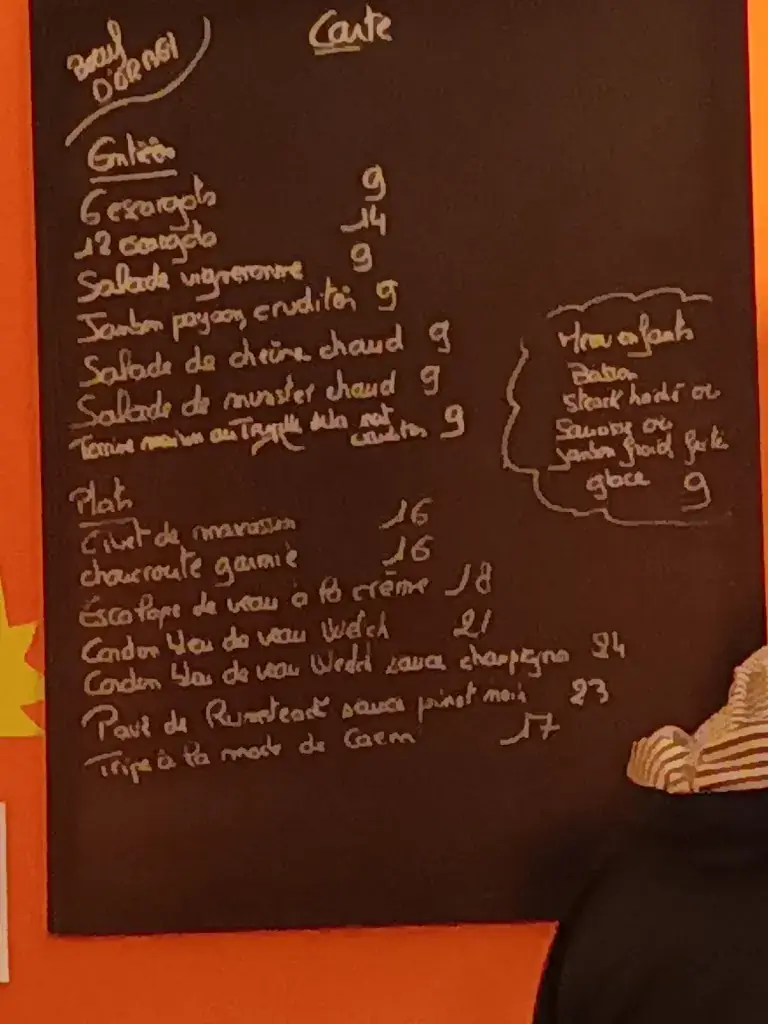 Carte
Boeuf
D'ORMOI
Entrées
6 escargots 9
12 escargots 14
Salade vigneronne 9
Jambon paysan, crudités 9
Salade de chèvre chaud 9
Salade de munster chaud 9
Terrine maison au de la
crudités 9
Menu enfants
steack haché ou
ou
jambon froid frite
glace 9
Plats
Civet de marcassin 16
choucroute garnie 16
Escalope de veau à la crème 18
Cordon bleu de veau Welch 21
Cordon bleu de veau Welch sauce champignon 24
Pavé de Rumsteack sauce pinot noir 23
Tripe à la mode de Caen 17